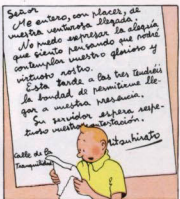 Señor
Me entero, con placer, de
vuestra venturosa llegada.
No puedo expresar la alegría
que siento pensando que podré
contemplar vuestro glorioso y
virtuoso rostro.
Esta tarde a las tres tendréis
la bondad de permitirme lle-
gar a vuestra presencia.
Su servidor espera respe-
tuoso vuestra contestación.
Mitsuhirato
Calle de la
Tranquilidad